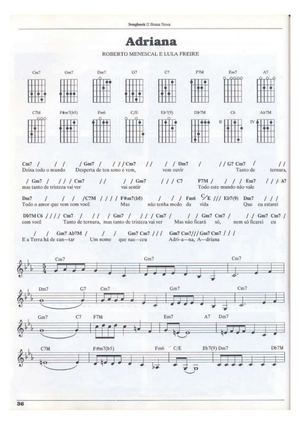 Songbook □ Bossa Nova
Adriana
ROBERTO MENESCAL E LULA FREIRE
Cm7 Gm7 Dm7 G7 C7 F7M Em7 A7
C7M F#m7(b5) Fm6 C/E Eb7(9) Db7M C6 Ab7M
Cm7 / / / Gm7 / / / Cm7 / / / Gm7 / / / Dm7 / / / G7 Cm7 /
Deixa todo o mundo Desperta de teu sono e vem vem ouvir Tanto de ternura,
/ Gm7 / / / Cm7 / / / Gm7 / / / C7 F7M / / / Em7 / A7
mas tanto de tristeza vai ver vai sentir Todo este mundo não vale
Dm7 / / /C7M / / / F#m7(b5) / / / Fm6 C/E /// Eb7(9) Dm7 /
Todo o amor que vem com você Mas não tenha medo da vida Que eu estarei
Db7M C6 Cm7 / Gm7 / Gm7 / Cm7 / Gm7 Cm7 /
com você Tanto de ternura, mas tanto de tristeza vai ver Mas não ficará só, nem só ficarei eu
Gm7 Ab7M / / / Dm7 / / / Gm7 Cm7///Gm7 Cm7 Gm7 /
E a Terra há de can—tar Um nome que nas—ceu Adri–a—na, A—driana
Cm7 Gm7 Cm7 Gm7
Dm7 G7 Cm7 Gm7 Cm7
Gm7 C7 F7M Em7 A7 Dm7
C7M F#m7(b5) Fm6 C/E Eb7(9) Dm7 Db7M
36